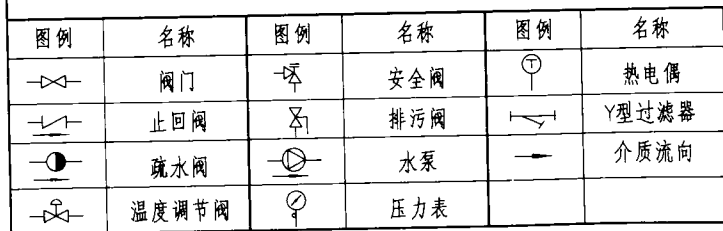 图例 名称 图例 名称 图例 名称
阀门 安全阀 T 热电偶
止回阀 排污阀 Y型过滤器
疏水阀 水泵 介质流向
温度调节阀 压力表